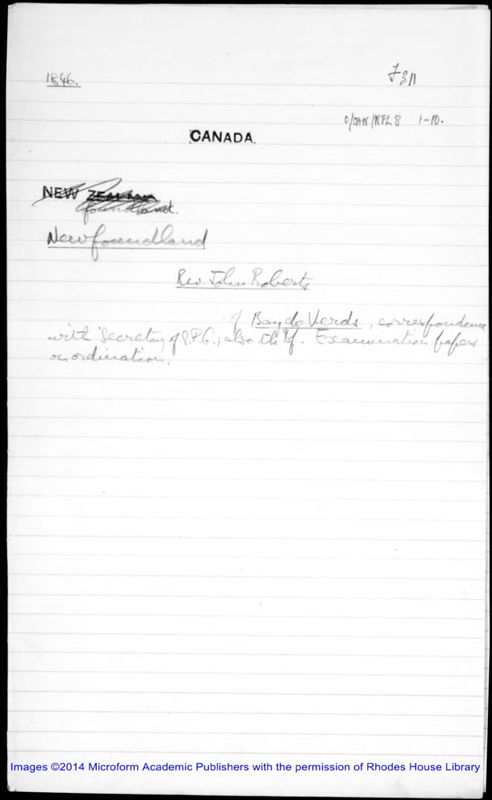 1846.
F 311
C/CAN/NFL 8 1-10.
CANADA.
NEW ZEALAND
foundland.
Newfoundland
Rev. John Roberts
of Bay de Verds, correspondence
with Secretary of S.P.G.; also th. Examination papers
on ordination.
Images ©2014 Microform Academic Publishers with the permission of Rhodes House Library